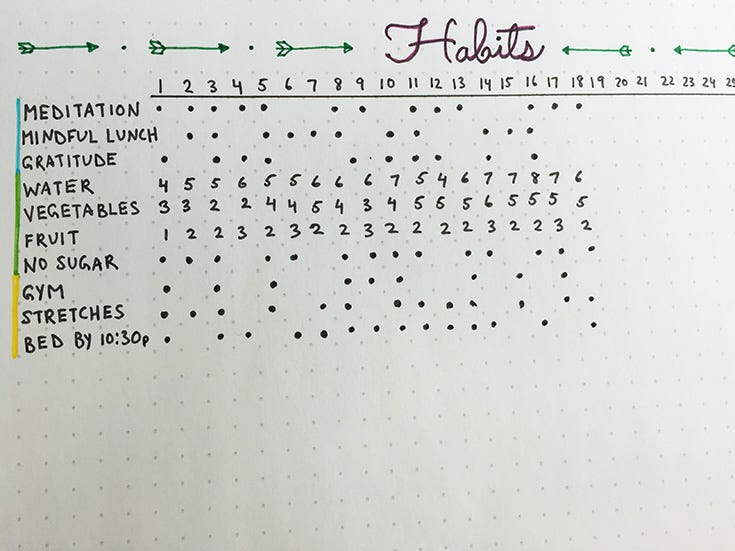 Habits
1 2 3 4 5 6 7 8 9 10 11 12 13 14 15 16 17 18 19 20 21 22 23 24 25
MEDITATION
MINDFUL LUNCH
GRATITUDE
WATER 4 5 5 6 5 5 6 6 6 7 5 4 6 7 7 8 7 6
VEGETABLES 3 3 2 2 4 4 5 4 3 4 5 5 5 6 5 5 5 5
FRUIT 1 2 2 3 2 3 2 2 3 2 2 2 2 3 2 2 3 2
NO SUGAR
GYM
STRETCHES
BED BY 10:30p